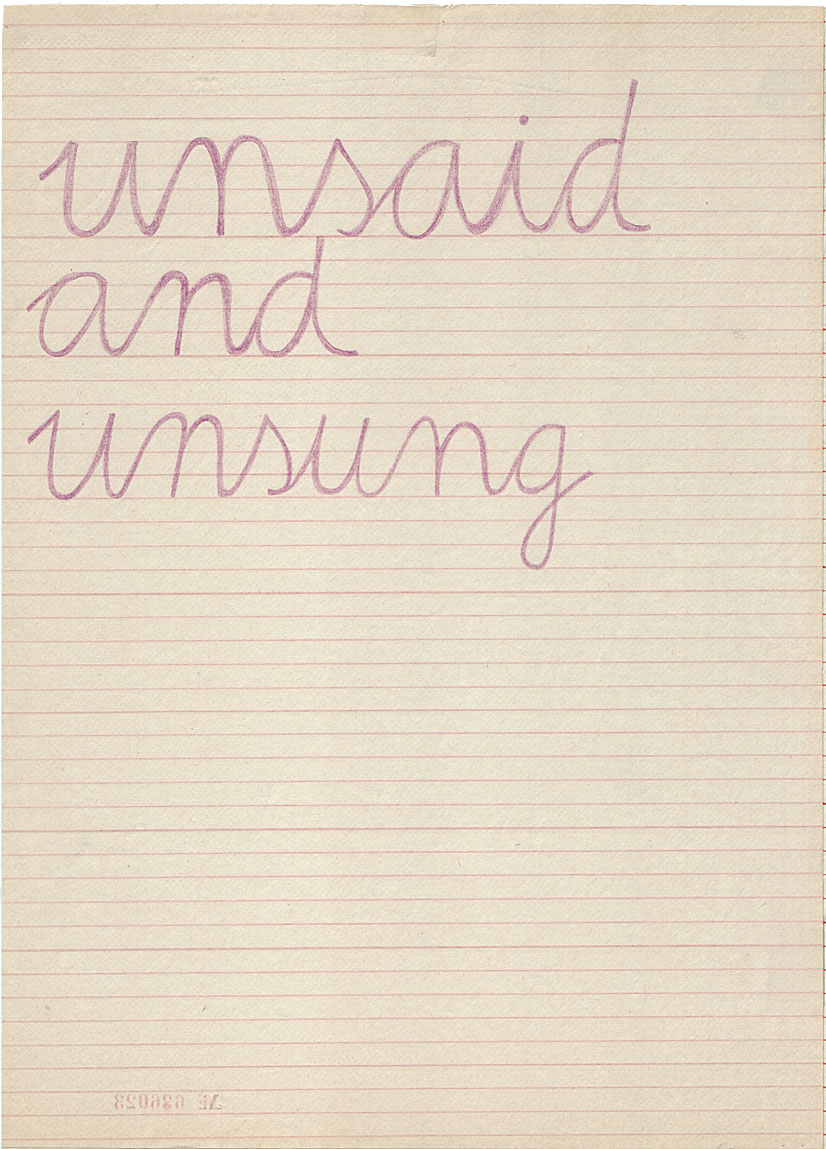 unsaid
and
unsung
№ 636023